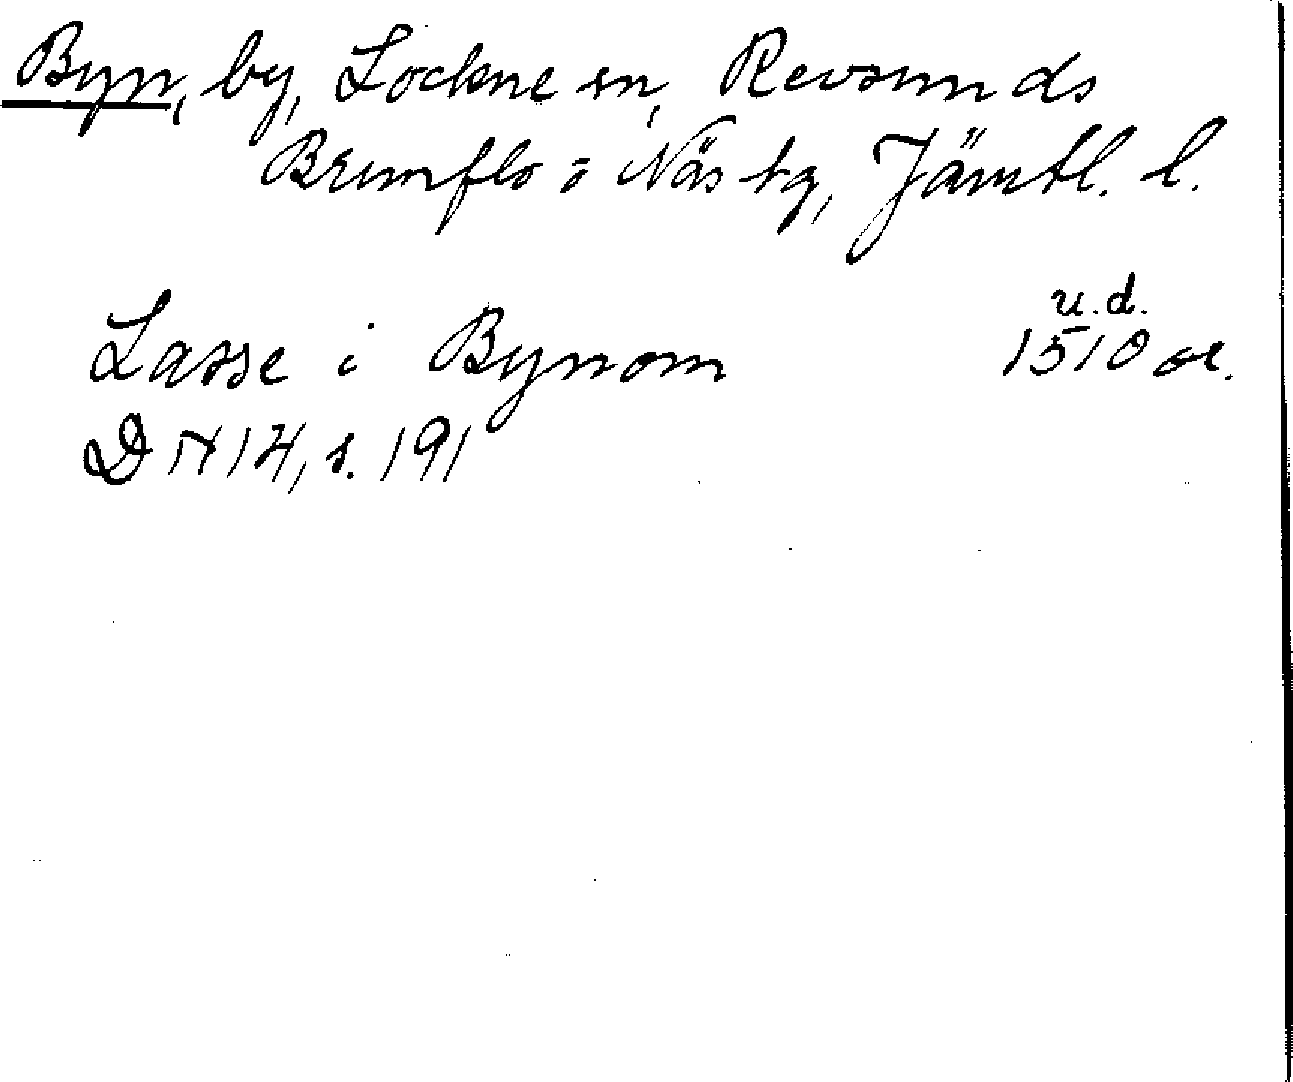 Byn, by, Lockne sn, Revsunds
Brunflo o Näs tg, Jämtl. l.
u.d.
Lasse i Bynom 1510 or.
DN 14, s. 191